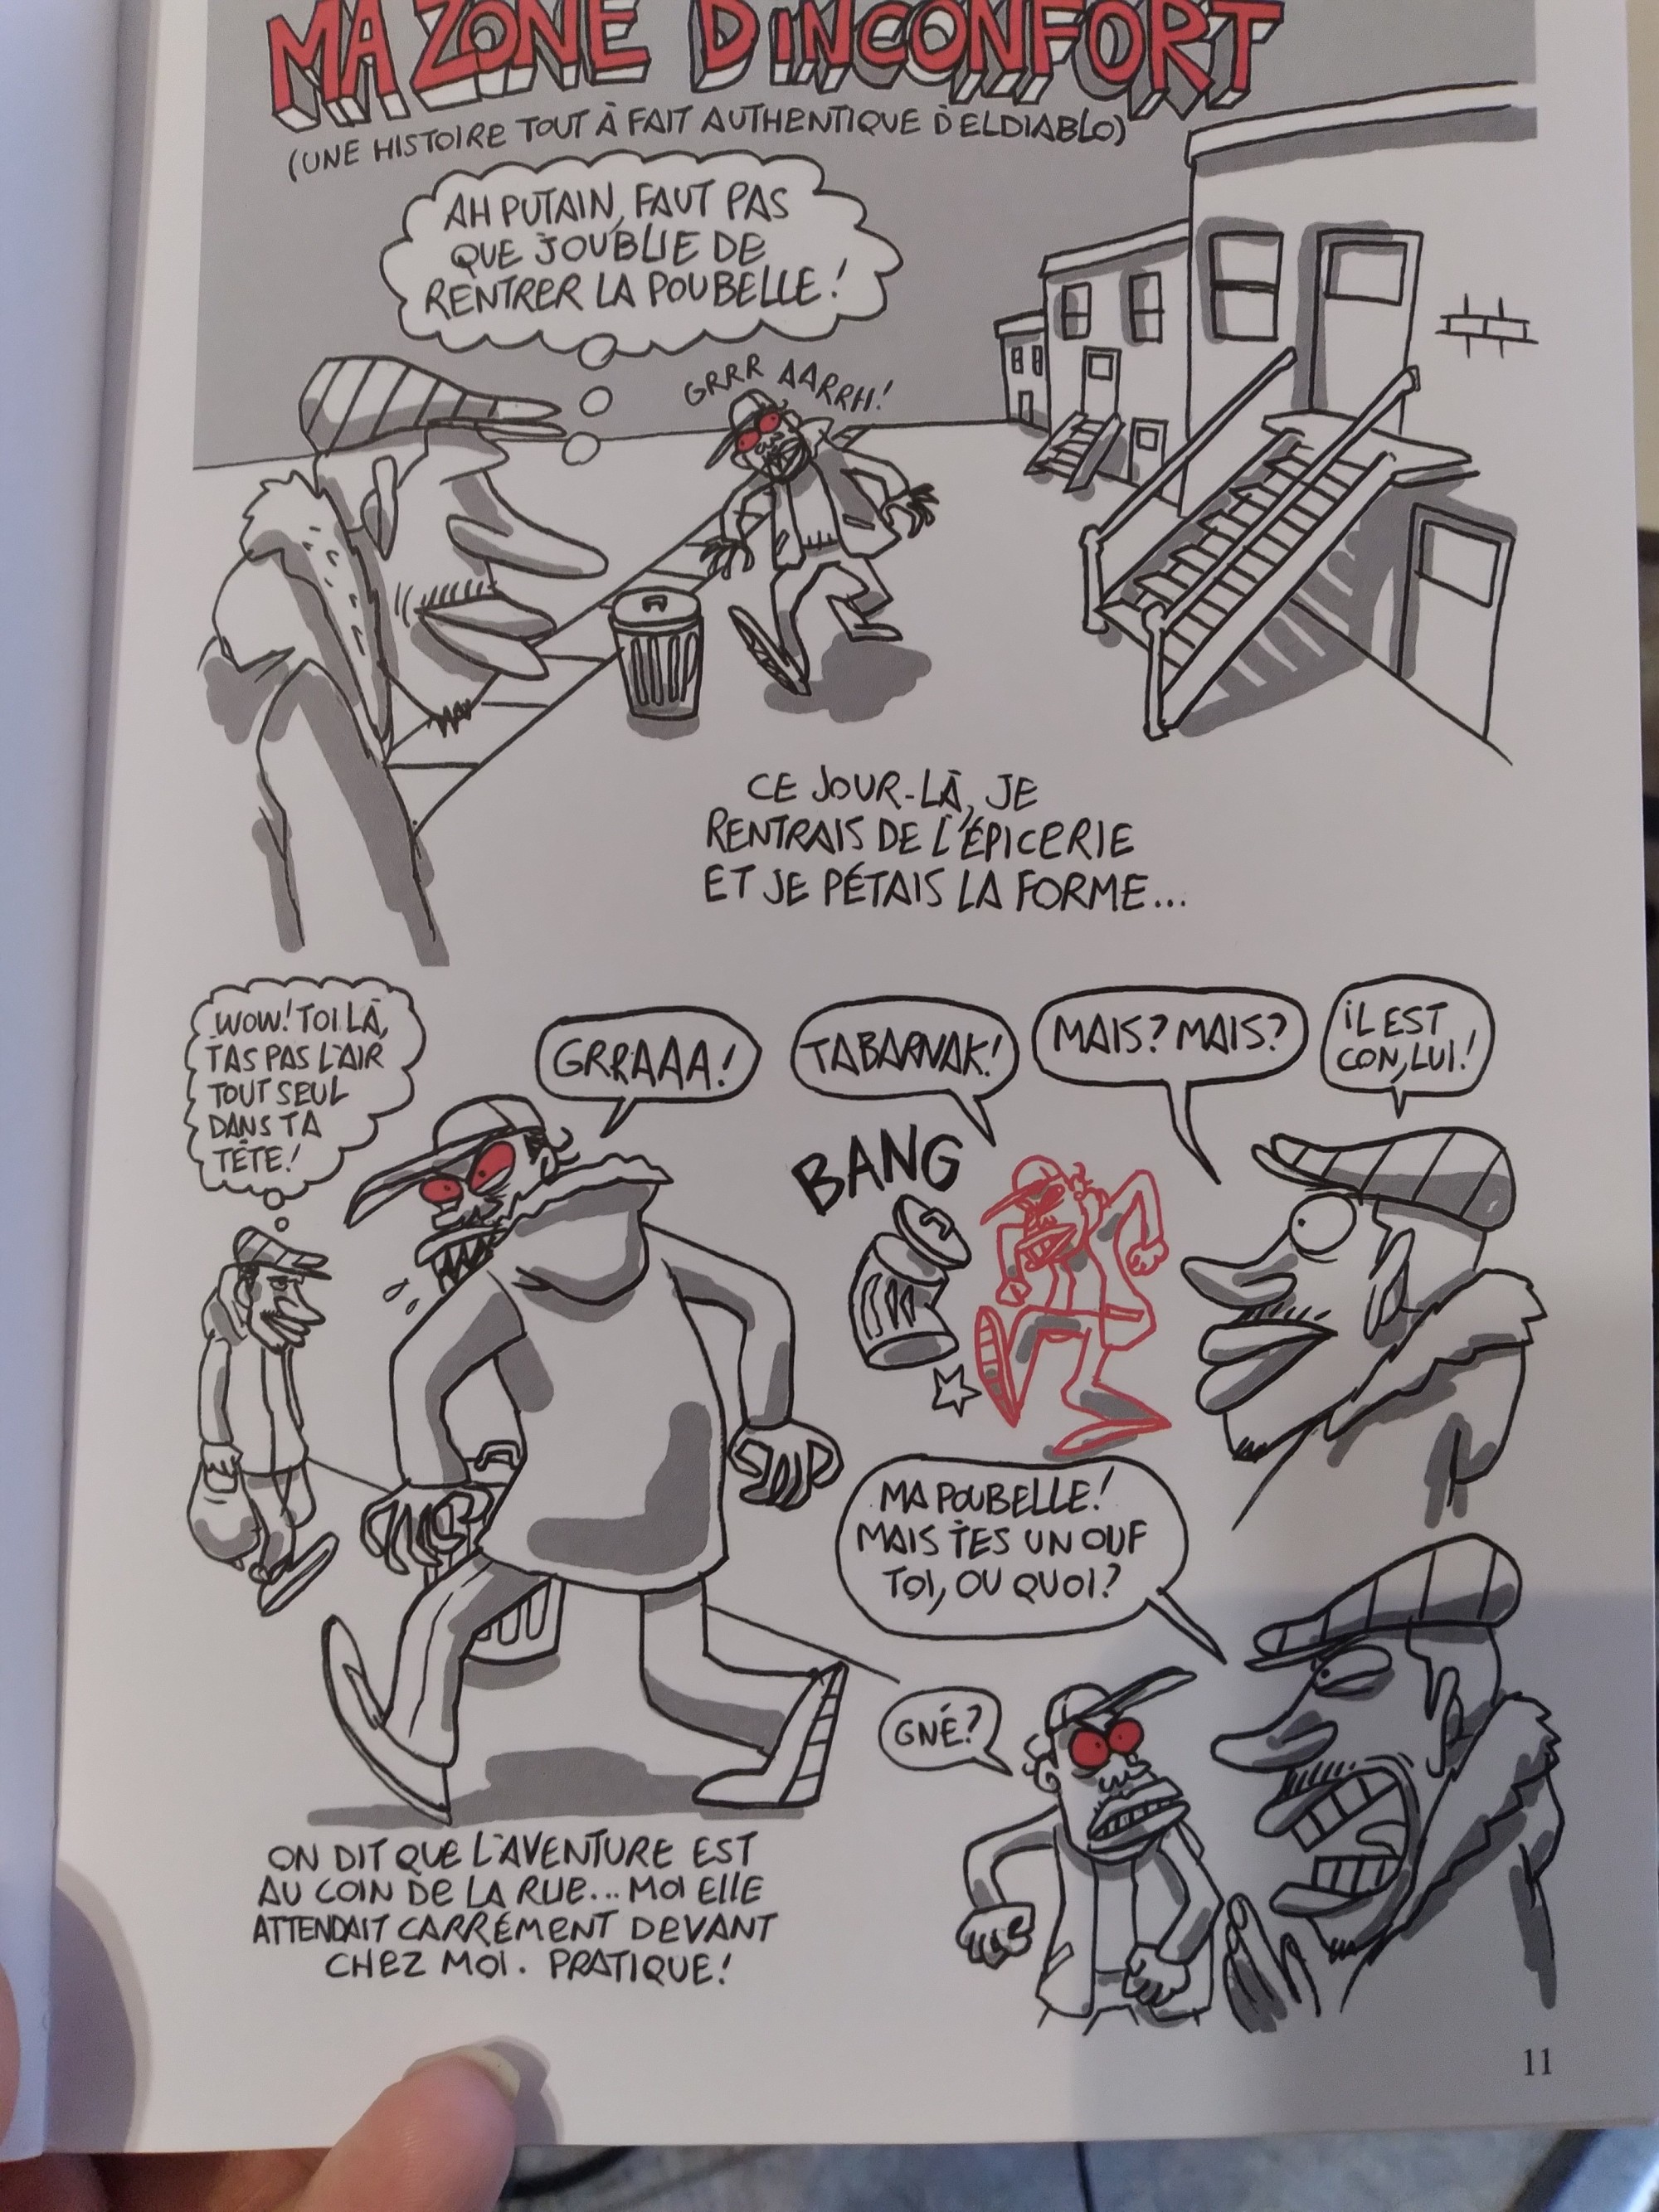 MA ZONE D'INCONFORT
(UNE HISTOIRE TOUT À FAIT AUTHENTIQUE D'ELDIABLO)
AH PUTAIN, FAUT PAS
QUE J'OUBLIE DE
RENTRER LA POUBELLE!
GRRR AARRH!
CE JOUR-LÀ, JE
RENTRAIS DE L'ÉPICERIE
ET JE PÉTAIS LA FORME...
WOW! TOI LÀ,
T'AS PAS L'AIR
TOUT SEUL
DANS TA
TÊTE!
GRRAAA!
ON DIT QUE L'AVENTURE EST
AU COIN DE LA RUE... MOI ELLE
ATTENDAIT CARRÉMENT DEVANT
CHEZ MOI. PRATIQUE!
TABARNAK!
BANG
MAIS? MAIS?
IL EST
CON, LUI!
MA POUBELLE!
MAIS T'ES UN OUF
TOI, OU QUOI?
GNÉ?
11